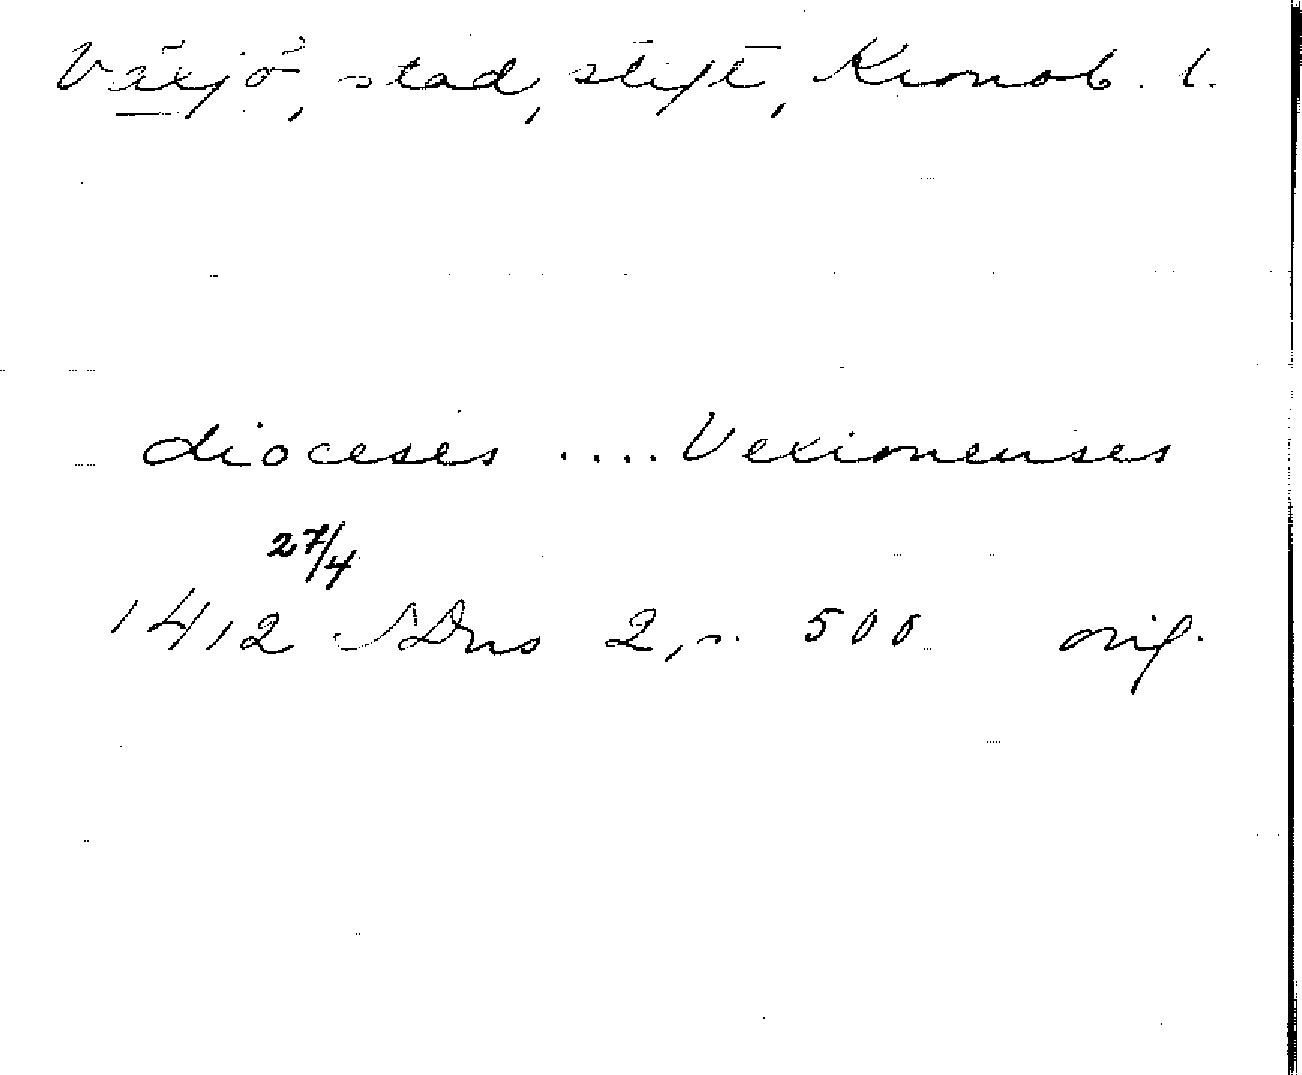 Växjö, stad, stift, Kronob. l.
dioceses .... Vexionenses
27/4
1412 SDns 2, s. 500 orig.